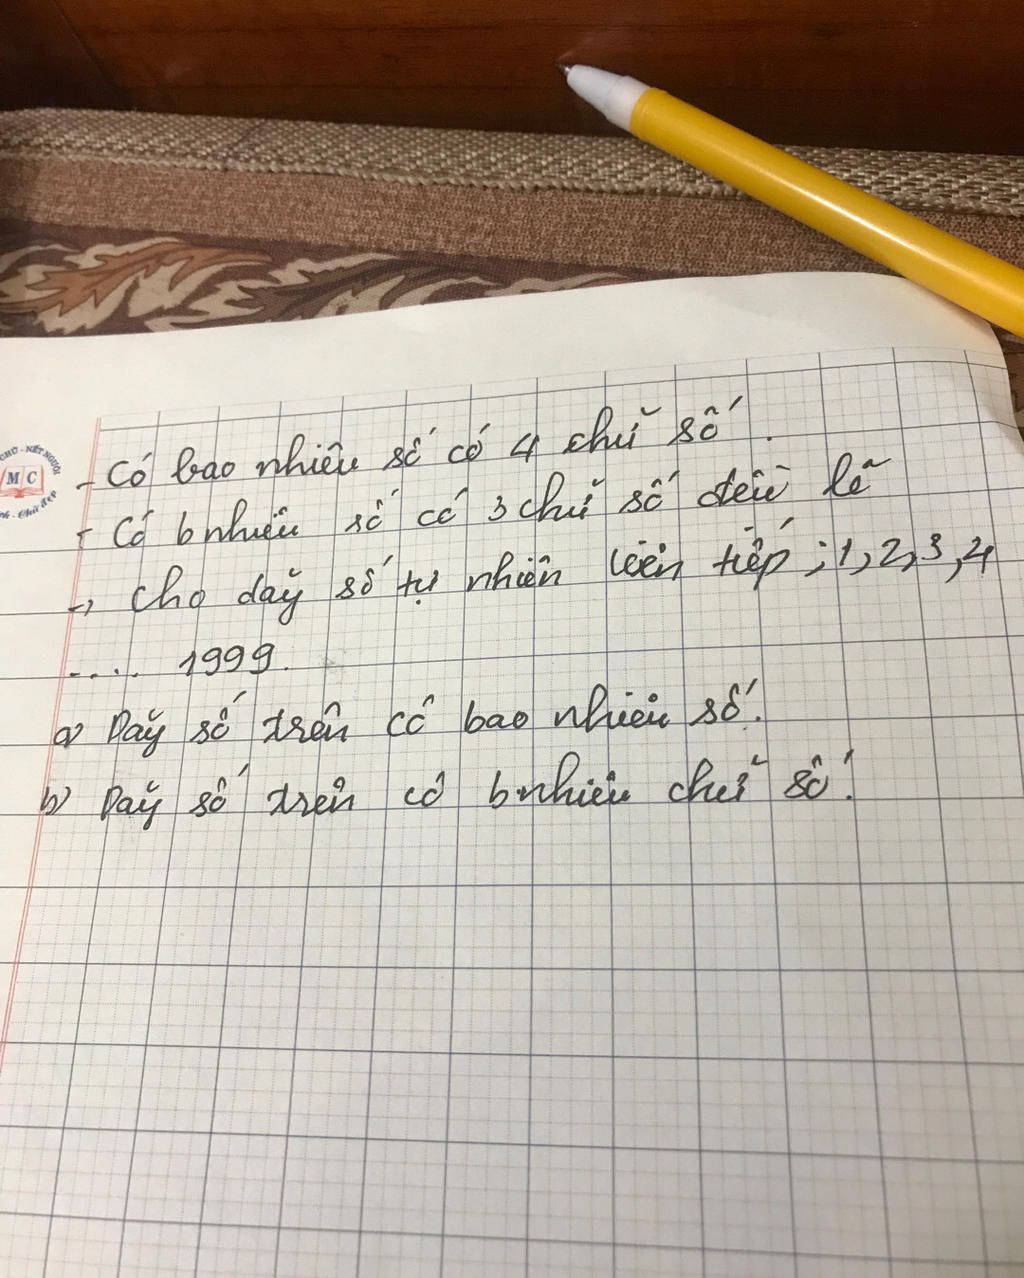 - Có bao nhiêu số có 4 chữ số.
- Có b nhiêu số có 3 chữ số đều lẽ
-, Cho dãy số tự nhiên liên tiếp ; 1, 2, 3, 4
..... 1999.
a) Dãy số trên có bao nhiêu số.
b) Dãy số trên có b nhiêu chữ số.
CHỮ - NẾT NGƯỜI
M C